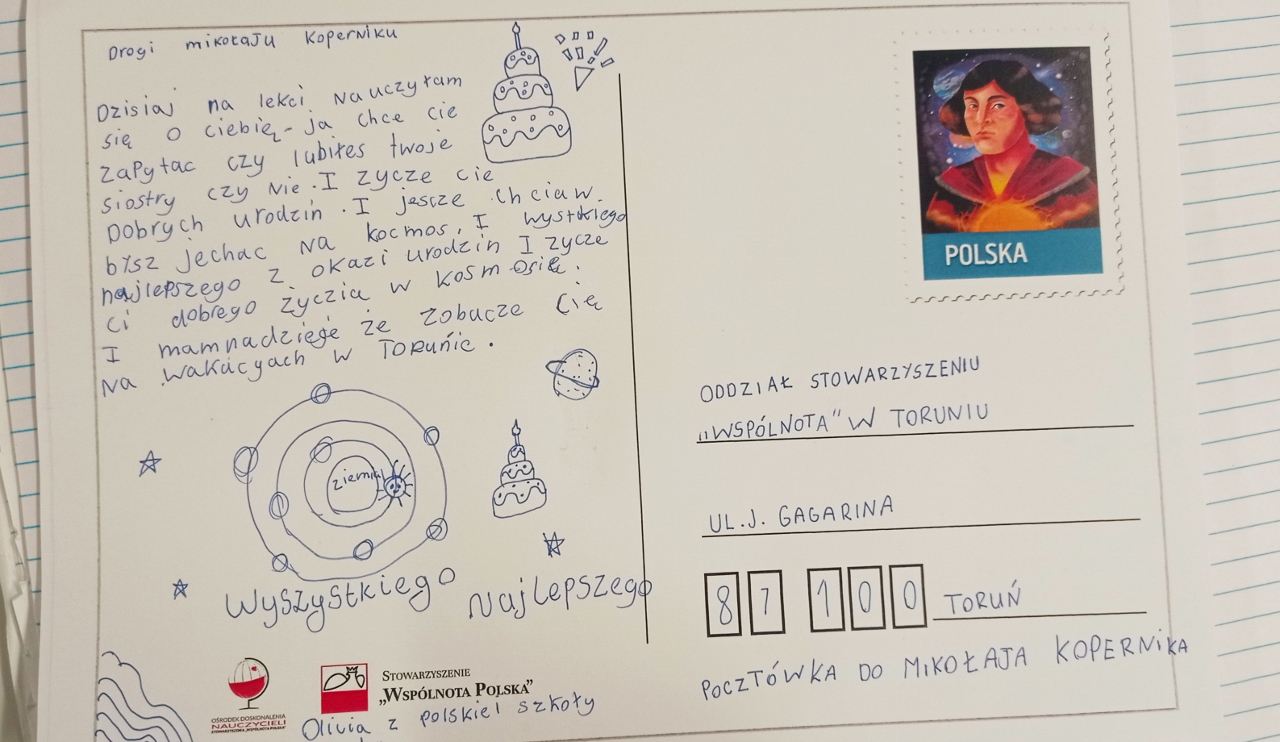 Drogi mikołaju Koperniku
Dzisiaj na lekci Nauczyłam
się o ciebię-ja chce cie
zapytac czy lubiłes twoje
siostry czy nie. I zycze cie
Dobrych urodzin. I jescze chciaw
bysz jechac na kocmos. I wystkiego
najlepszego z okazi urodzin I zycze
ci dobrego życzia w kosmosie.
I mamnadzieję że zobacze cię
na wakacyach w Toruńie.
ziemia
Wyszystkiego Najlepszego
OŚRODEK DOSKONALENIA
NAUCZYCIELI
STOWARZYSZENIA „WSPÓLNOTA POLSKA”
STOWARZYSZENIE
„WSPÓLNOTA POLSKA”
Olivia z polskiei szkoły
POLSKA
ODDZIAŁ STOWARZYSZENIU
„WSPÓLNOTA" W TORUNIU
UL.J. GAGARINA
87 100 TORUŃ
POCZTÓWKA DO MIKOŁAJA KOPERNIKA